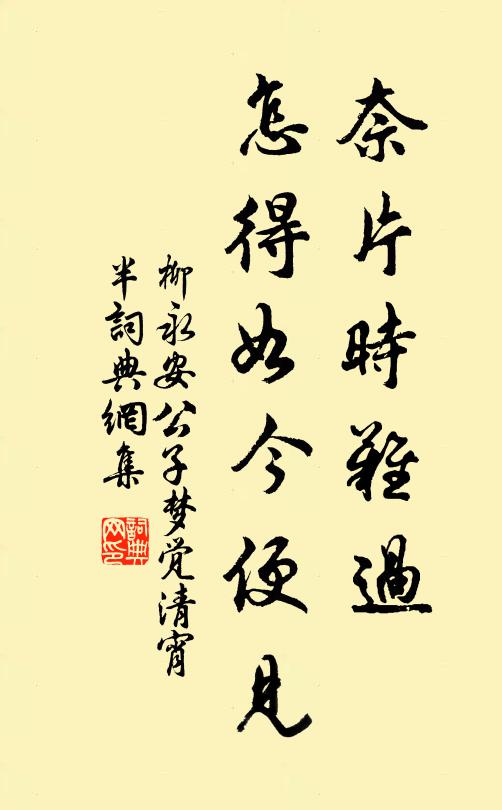 奈片時難過
怎得如今便見
柳永安公子梦觉清宵
半詞典網集
詞典网印